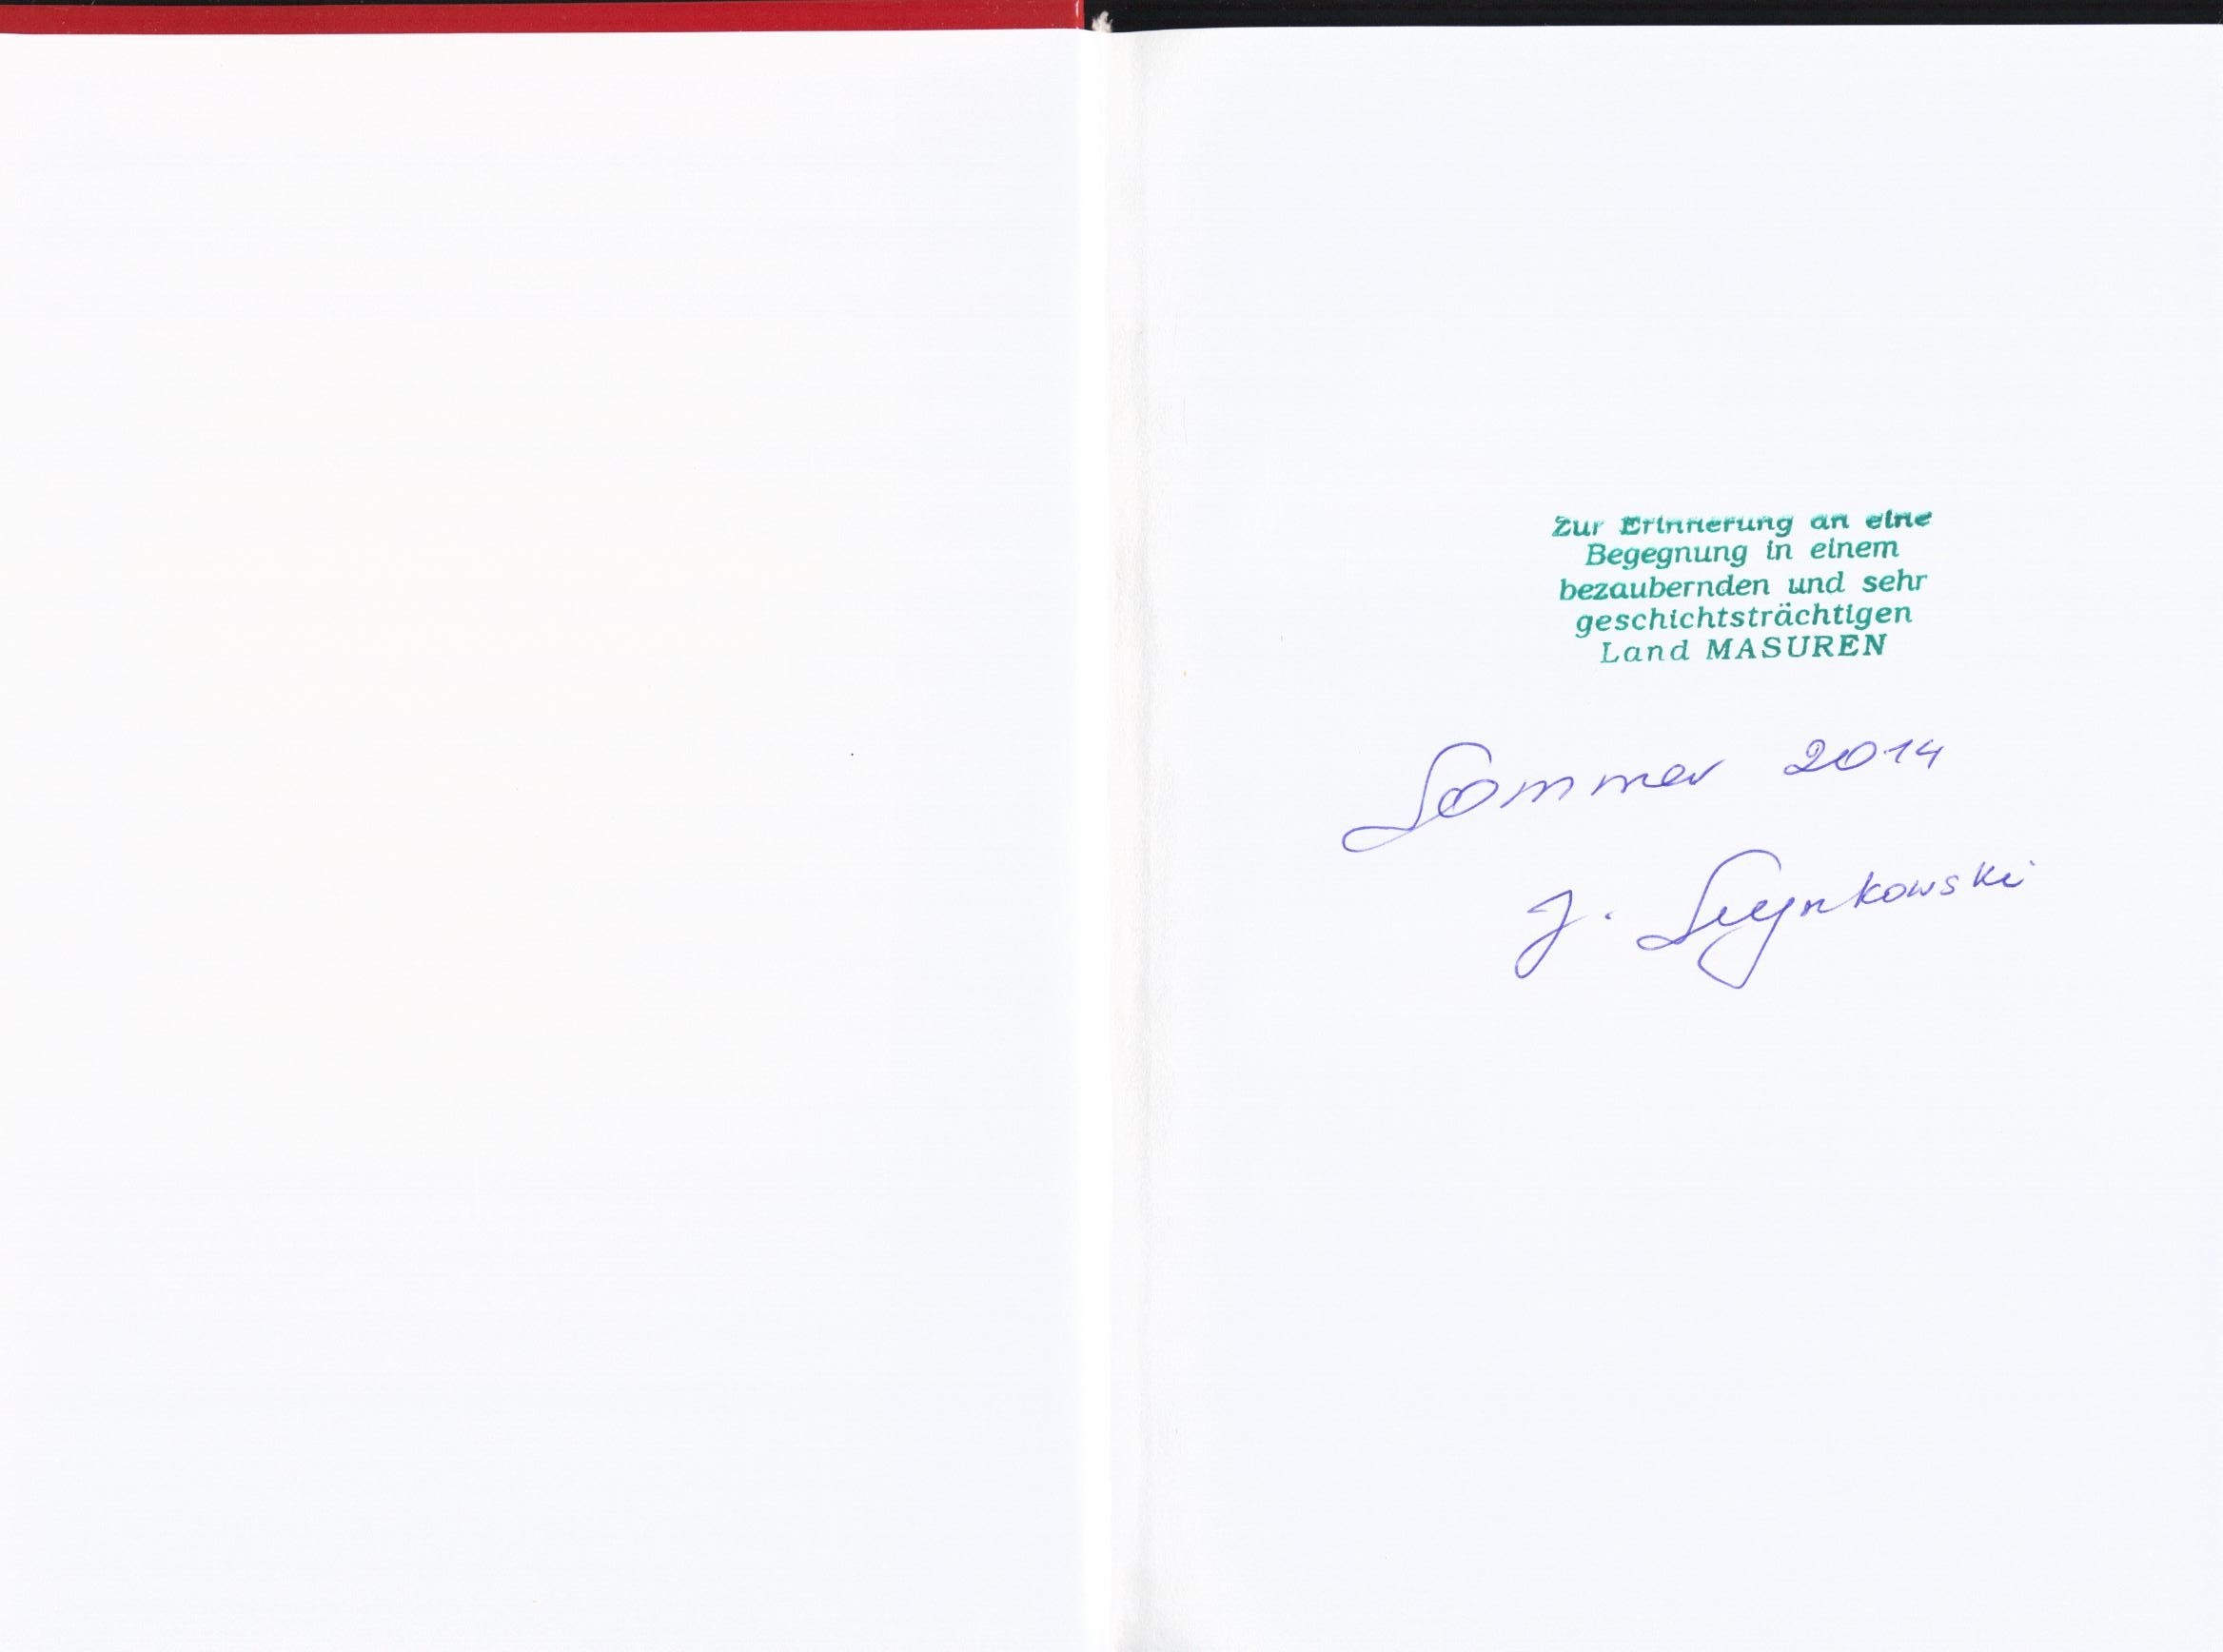 Zur Erinnerung an eine
Begegnung in einem
bezaubernden und sehr
geschichtsträchtigen
Land MASUREN
Sommer 2014
J.